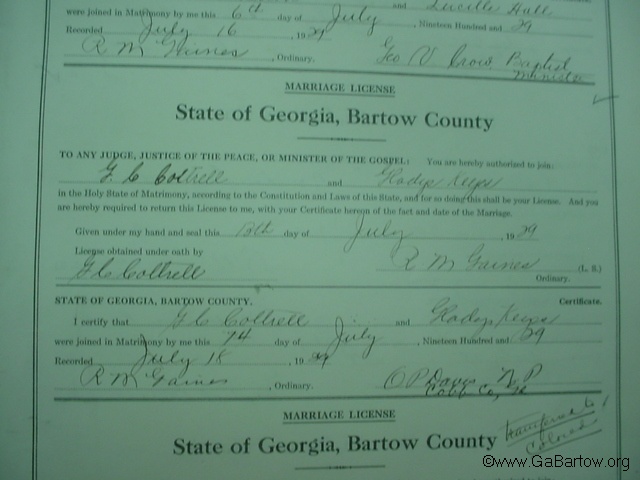 and Lucille Hall
were joined in Matrimony by me this 6th day of July, Nineteen Hundred and 29
Recorded July 16, 1929
R M Gaines, Ordinary. Geo V Crow, Baptist
Minister
MARRIAGE LICENSE
State of Georgia, Bartow County
TO ANY JUDGE, JUSTICE OF THE PEACE, OR MINISTER OF THE GOSPEL: You are hereby authorized to join:
G. C Cottrell and Gladys
in the Holy State of Matrimony, according to the Constitution and Laws of this State, and for so doing this shall be your License. And you
are hereby required to return this License to me, with your Certificate hereon of the fact and date of the Marriage.
Given under my hand and seal this 13th day of July, 1929
License obtained under oath by R M Gaines (L. S.)
G C Cottrell Ordinary.
STATE OF GEORGIA, BARTOW COUNTY. Certificate.
I certify that G. C Cottrell and Gladys
were joined in Matrimony by me this 14 day of July, Nineteen Hundred and 29
Recorded July 18, 1929
R M Gaines, Ordinary. O P Davis N P
Cobb Co, Ga
MARRIAGE LICENSE
State of Georgia, Bartow County
transferred to
Colored
©www.GaBartow.org